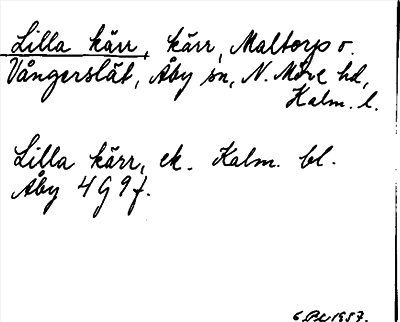 Lilla kärr, kärr, Maltorp o.
Vångerslät, Åby sn, N. Möre hd,
Kalm. l.
Lilla kärr, ek. Kalm. bl.
Åby 4G9f.
1957.